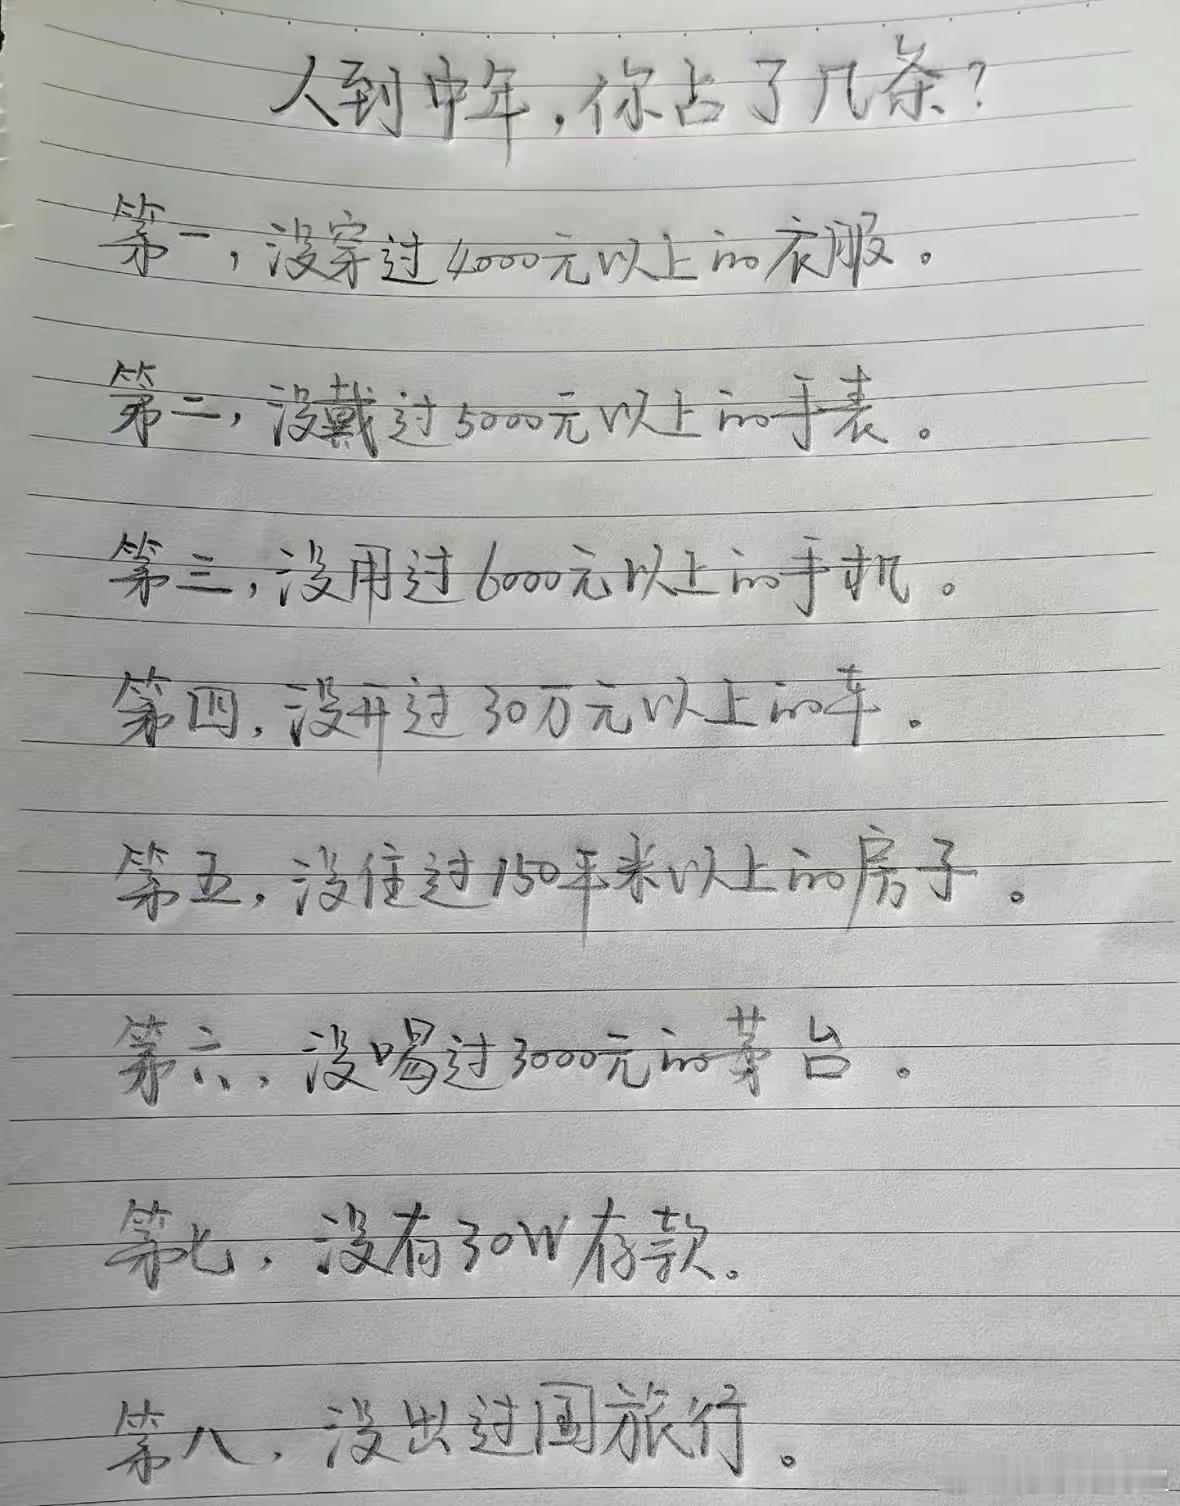 人到中年，你占了几条？
第一，没穿过4000元以上的衣服。
第二，没戴过5000元以上的手表。
第三，没用过6000元以上的手机。
第四，没开过30万元以上的车。
第五，没住过150平米以上的房子。
第六，没喝过3000元的茅台。
第七，没有30W存款。
第八，没出过国旅行。